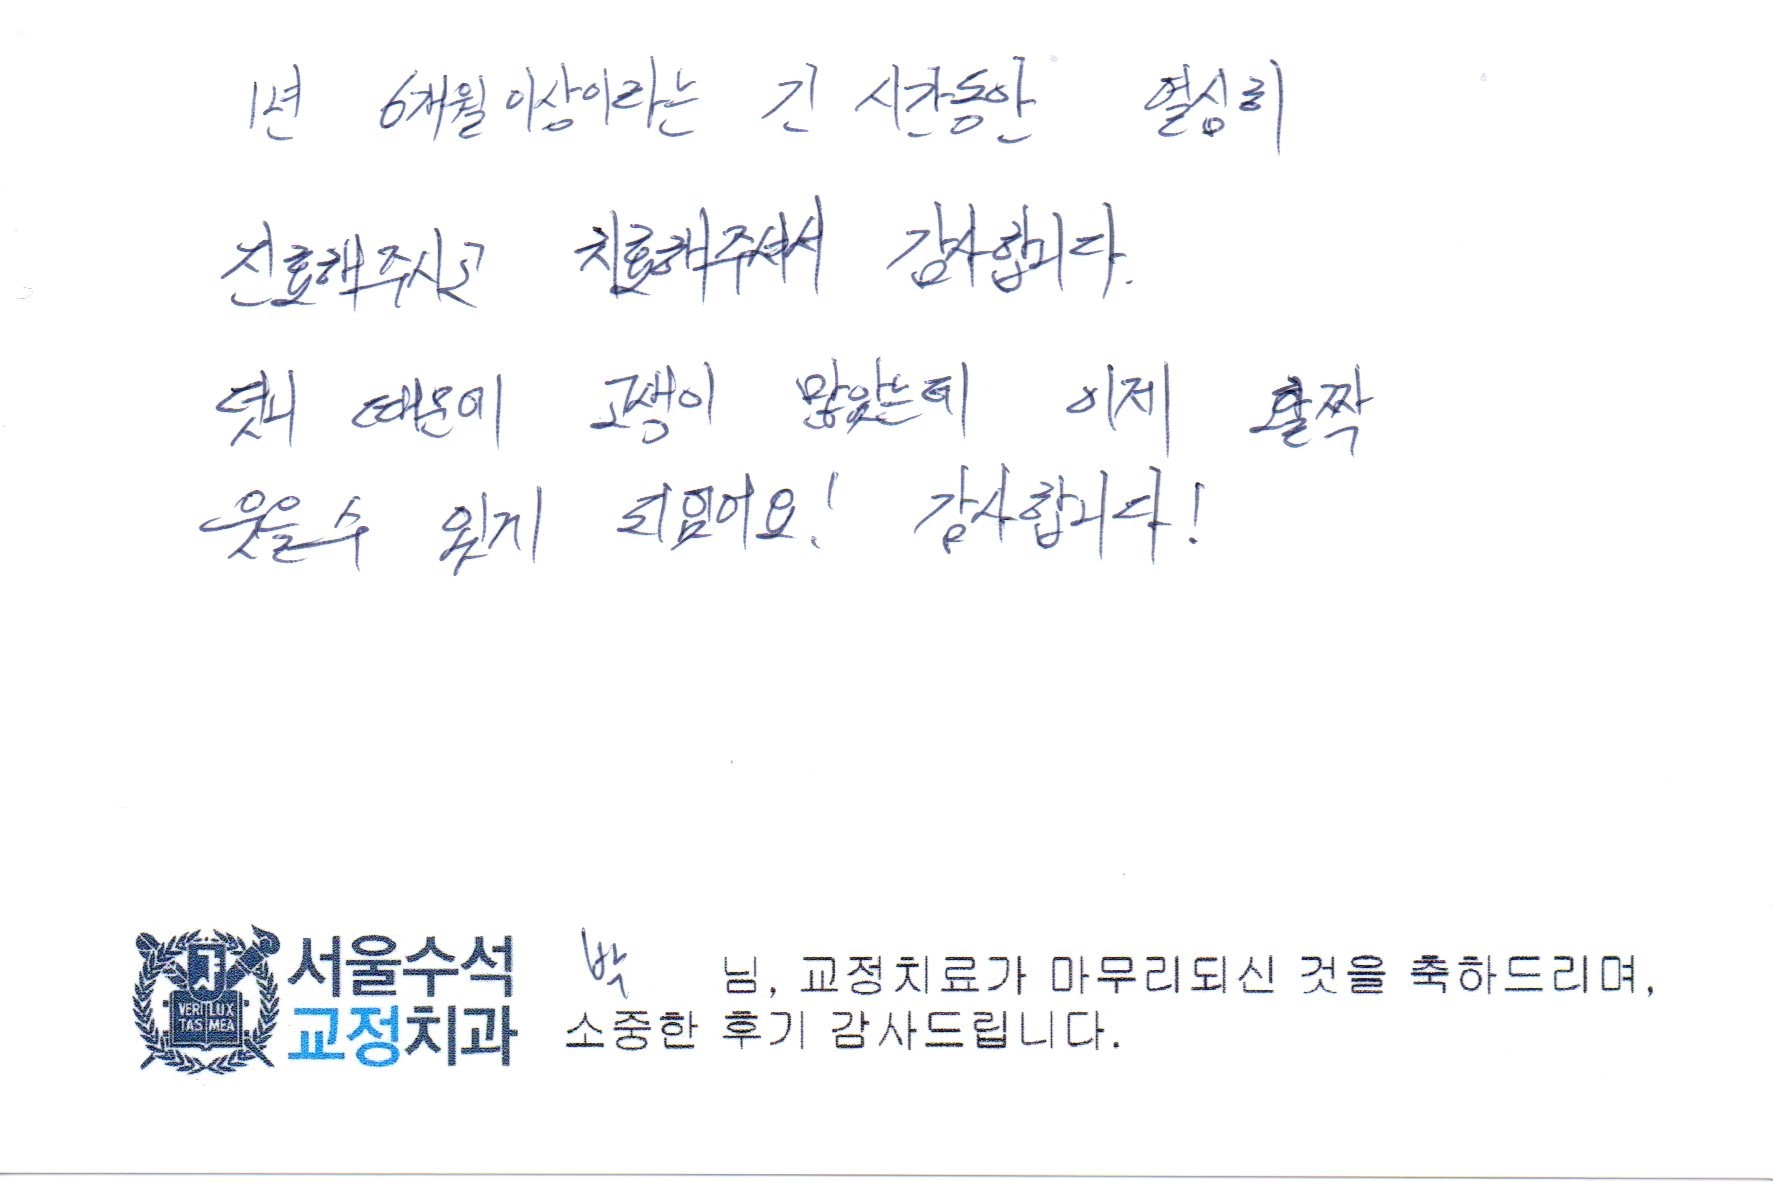 1년 6개월 이상이라는 긴 시간동안 열심히
진료해주시고 치료해주셔서 감사합니다.
덧니 때문에 고생이 많았는데 이제 활짝
웃을 수 있게 되었어요! 감사합니다!
서울수석
교정치과
VERI LUX
TAS MEA
박 님, 교정치료가 마무리되신 것을 축하드리며,
소중한 후기 감사드립니다.